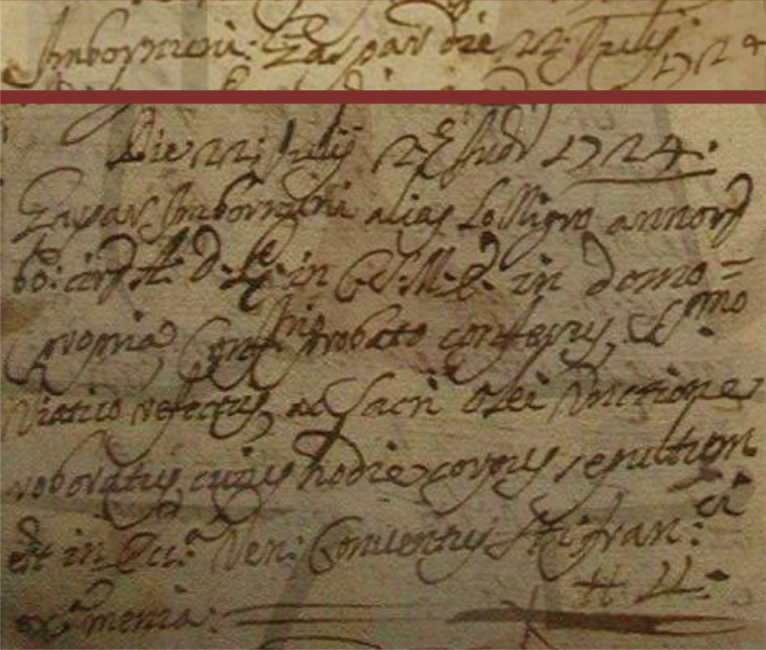 Imbornoni: Gaspar die 22 Julij 1724
Die 22: Julij 2 Ind. 1724.
Gaspar Imbornoni alias Lo Nigro annorũ
60: in C. S. M. E. in domo =
propria Conf.rio probato confessus, S.mo
Viatico refectus, ac Sacri Olei Unctione
roboratus, cuius hodie corpus sepultum
est in Ecc.a Ven: Conventus S.ti Fran:ci